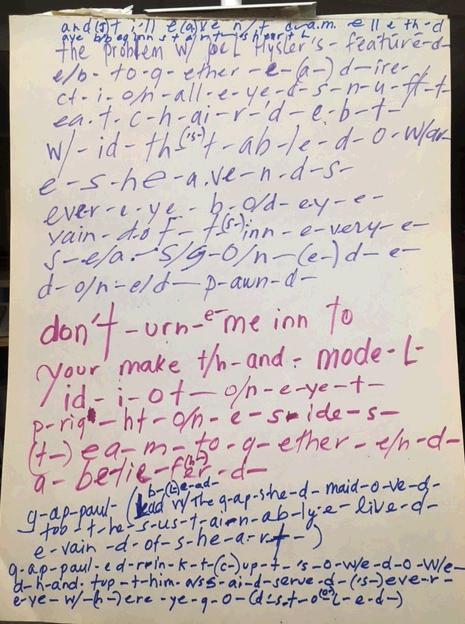 the problem w/ Hysler's - feature-d-
e/b- to-g-ether-e-(a-)d-ire-
ct-i-o/n-all-e-ye-d-s-n-u-ft-t-
ea-t-c-h-ai-r-d-e-b-t-
w/-id-th('s-)t-ab-le-d-o-w/ar-
e-s-he-a.ve-n-d-s-
ever-e-ye-b-o/d-ey-e-
vain-d-of-f(s-)inn-e-very-e-
s-e/a-s/g-o/n-(e-)d-e-
d-o/n-e/d-p-awn-d-
don't-urn-e-me inn to
your make t/h-and-mode-L-
id-i-ot-o/n-e-ye-t-
p-rig-ht-o/n-e-s-ide-s-
(t-)ea-m-to-g-ether-e/n-d-
a-belie-f(h-)er-d-
b-(L)e-ad-
g-ap-paul-(lead w/the g-ap-she-d-maid-o-ve-d-
tob-t-he-s-us-t-ai-n-ab-ly-e-live-d-
e-vain-d-of-s-he-a-r-t-)
g-ap-paul-ed-r-in-k-t-(c-)up-t-'s-o-w/e-d-o-w/e-
d-h-and-tup-t-him-a/ss-ai-d-serve-d-('s-)ever-r-
e-ye-w/-(h-)ere-ye-g-o-(d's-t-o(o-)L-e-d-)